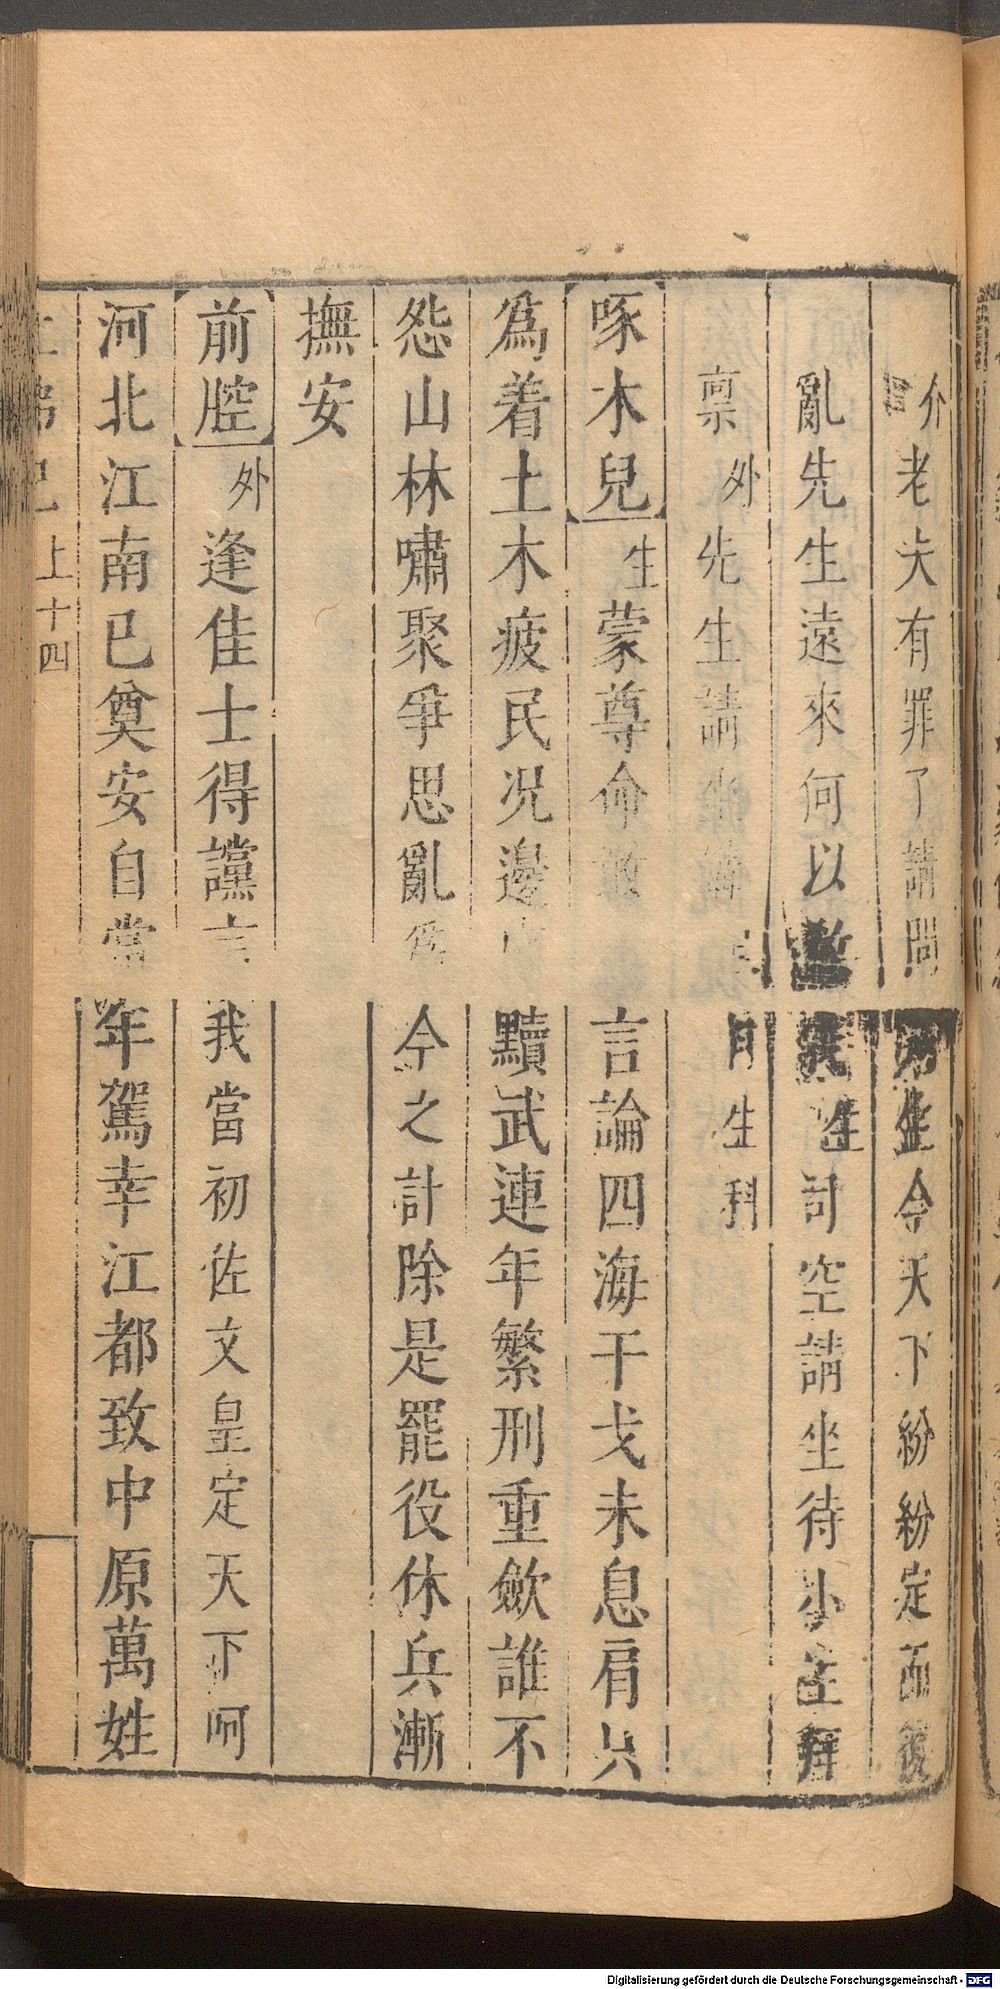 介老夫有罪了請問 生今天下紛紛定而復
亂先生遠來何以教我生司空請坐待小生拜
稟外先生請 生科
啄木兒生蒙尊命 言論四海干戈未息肩只
爲着土木疲民况邊 黷武連年繁刑重斂誰不
怨山林嘯聚爭思亂爲今之計除是罷役休兵漸
撫安
前腔外逢佳士得讜言我當初佐文皇定天下呵
河北江南已奠安自當年駕幸江都致中原萬姓
上十四
Digitalisierung gefördert durch die Deutsche Forschungsgemeinschaft - DFG